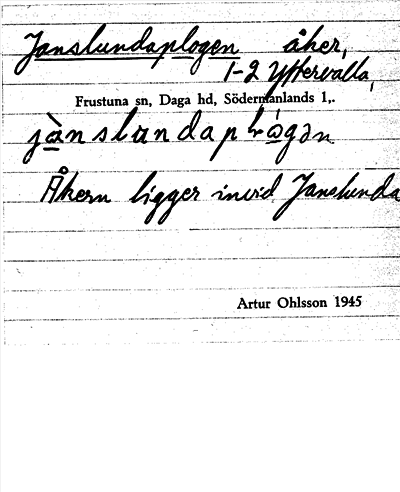 Janslundaplogen åker,
1-2 Yttervalla,
Frustuna sn, Daga hd, Södermanlands l,.
jànslundaplágan
Åkern ligger invid Janslunda
Artur Ohlsson 1945